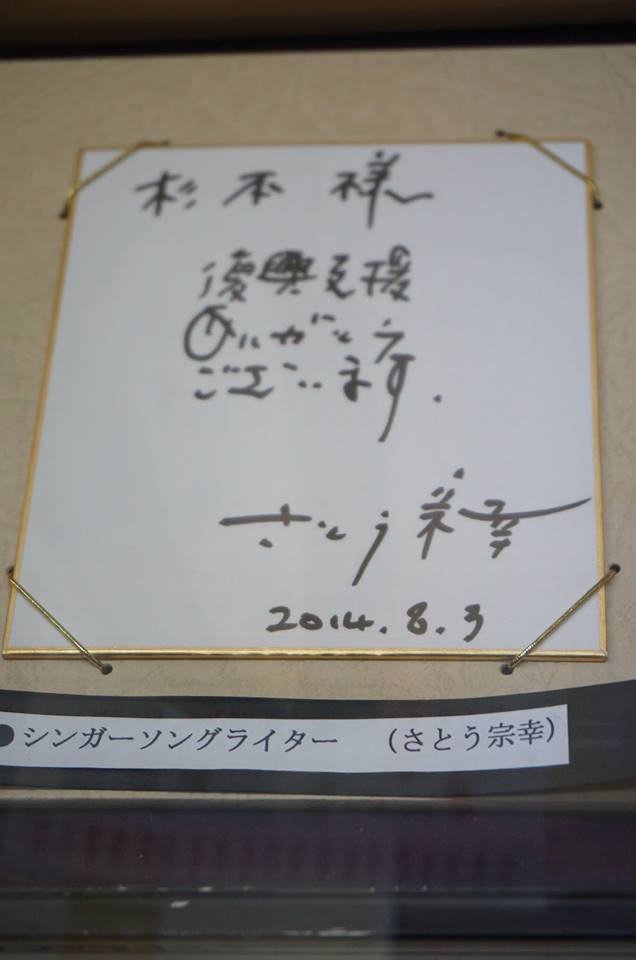 杉本様
復興支援
ありがとう
ございます.
さとう宗幸
2014.8.3
●シンガーソングライター (さとう宗幸)